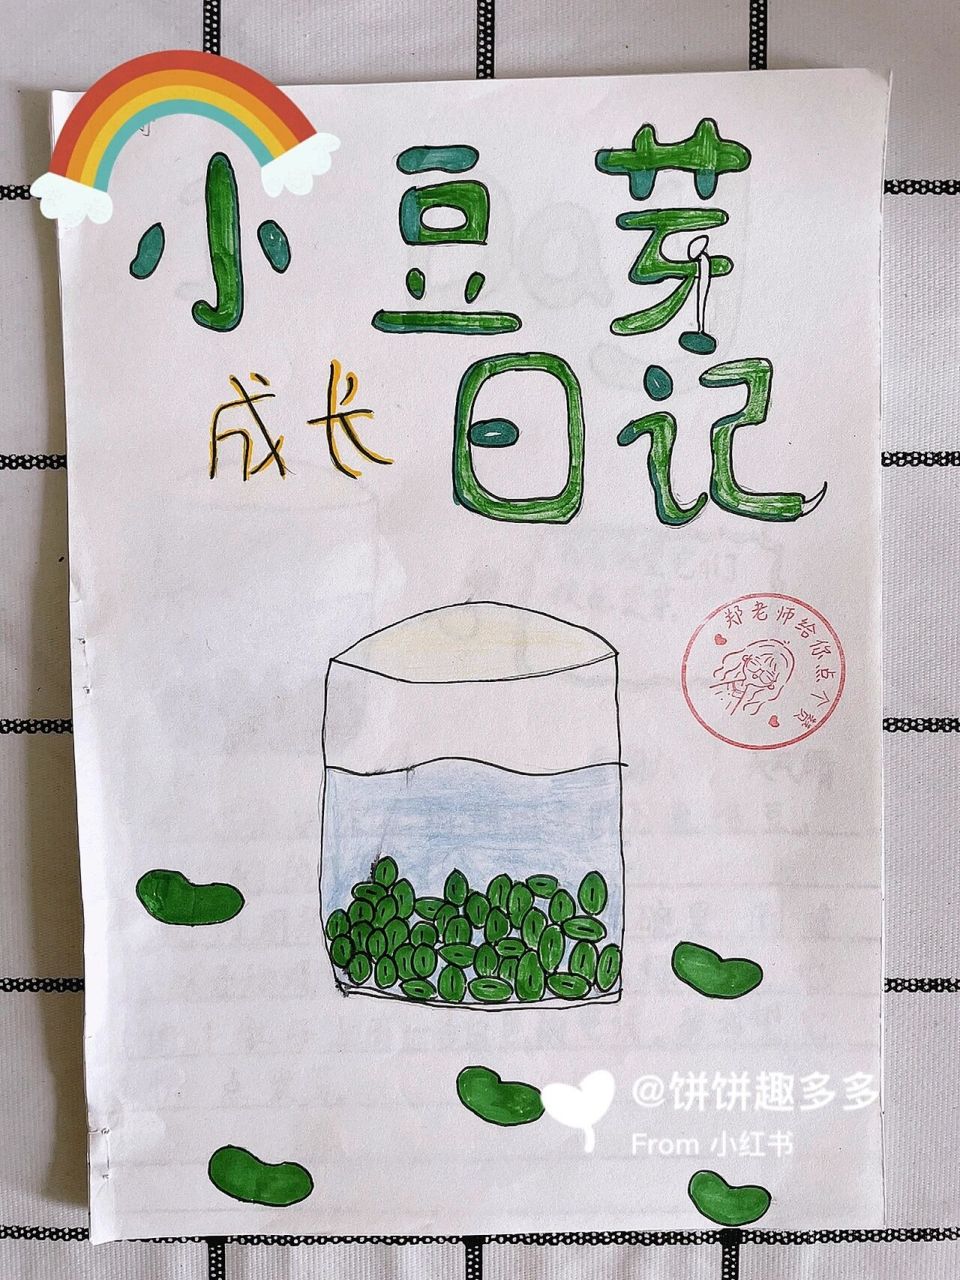 小豆芽
成长日记
郑老师给你点个赞
@饼饼趣多多
From 小红书